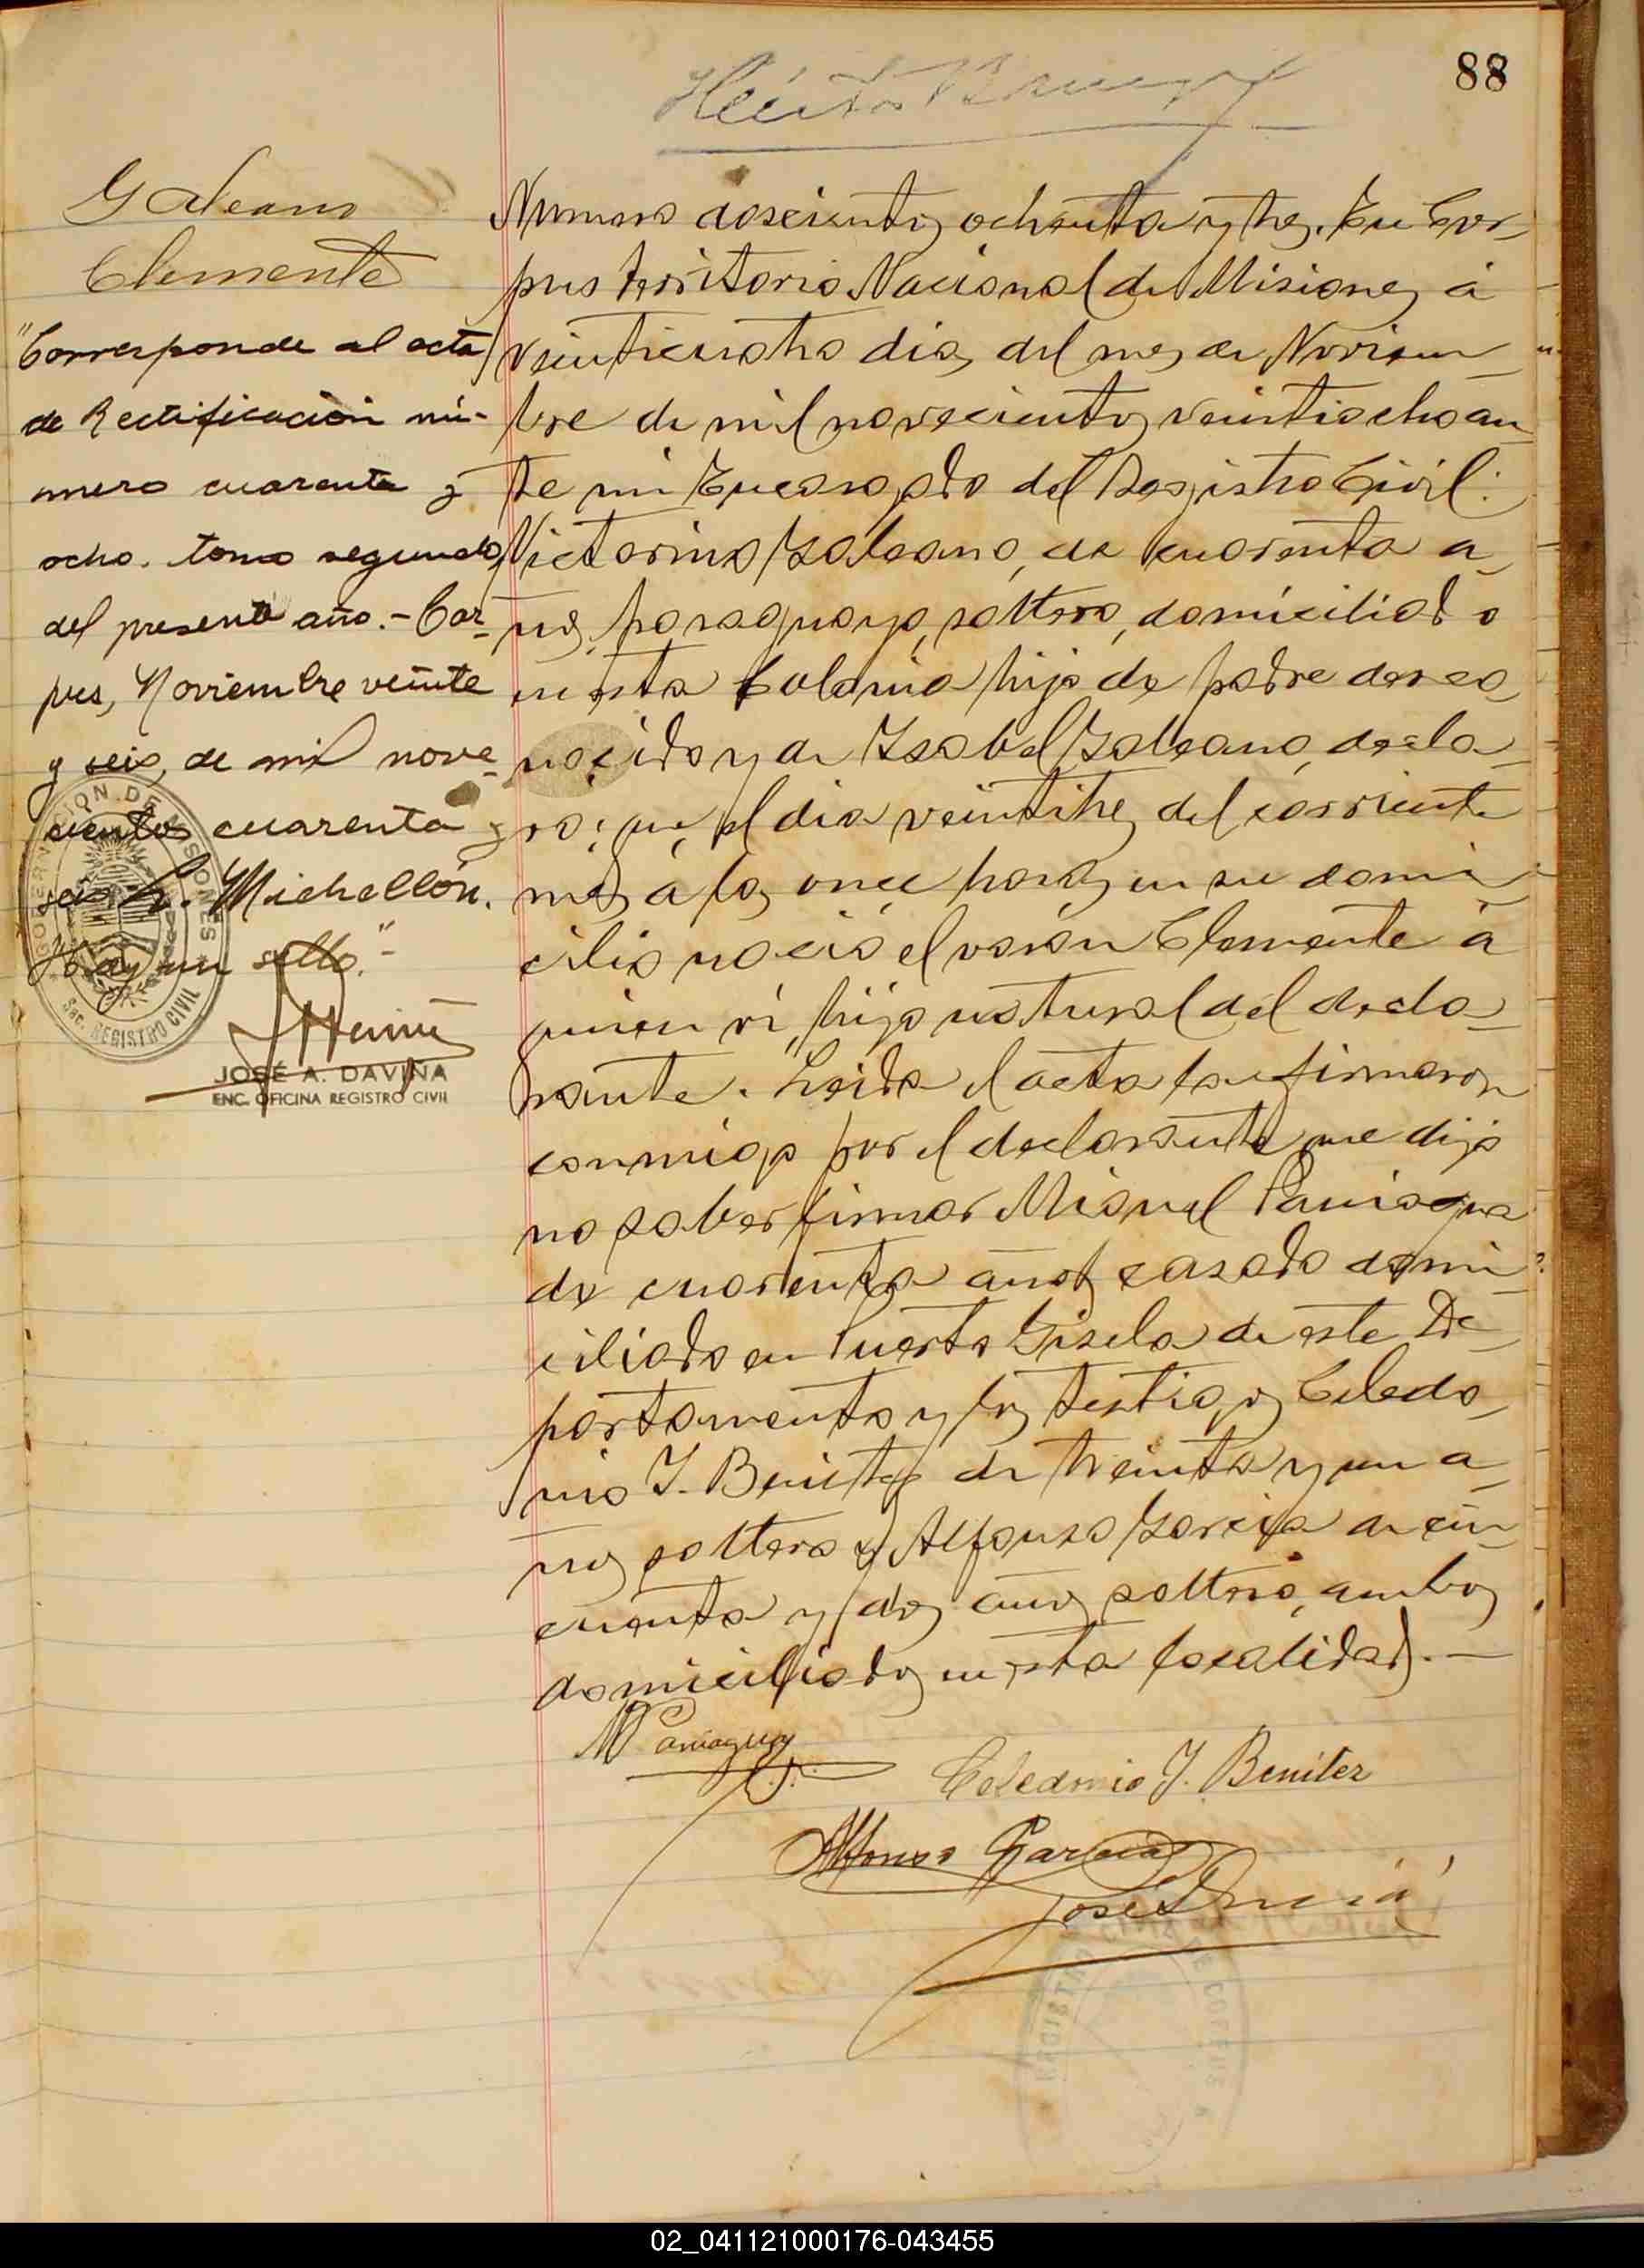 88
Galeano
Clemente
"Corresponde al acta
de Rectificación nú-
mero cuarenta y
ocho. tomo segundo,
del presente año.- Cor-
pus, Noviembre veinte
y seis, de mil nove-
cientos cuarenta y
seis. Michellón.
Hay un sello."-
GOBERNACION DE MISIONES
Sec. REGISTRO CIVIL
JOSÉ A. DAVIÑA
ENC. OFICINA REGISTRO CIVIL
Numero doscientos ochenta y tres. En Cor-
pus territorio Nacional de Misiones á
veinticuatro dias del mes de Noviem-
bre de mil novecientos veintiocho an-
te mi Encargado del Registro Civil:
Victorino Galeano, de cuarenta a-
ños, paraguayo, soltero, domiciliado
en esta Colonia hijo de padre desco-
nocido y de Ysabel Galeano, decla-
ró: que el dia veintitres del corriente
mes á las once horas en su domi-
cilio nació el varón Clemente á
quien ví, hijo natural del decla-
rante. Leida el acta la firmaron
conmigo por el declarante que dijo
no saber firmar Miguel Paniagua
de cuarenta años casado domi-
ciliado en Puerto Gisela de este De-
partamento y los testigos Celedo-
nio Y. Benitez de treinta y un a-
ños soltero y Alfonso Garcia de cin-
cuenta y dos años soltero, ambos
domiciliados en esta localidad.-
M Paniagua
Celedonio Y. Benitez
Alfonso Garcia
José
02_041121000176-043455